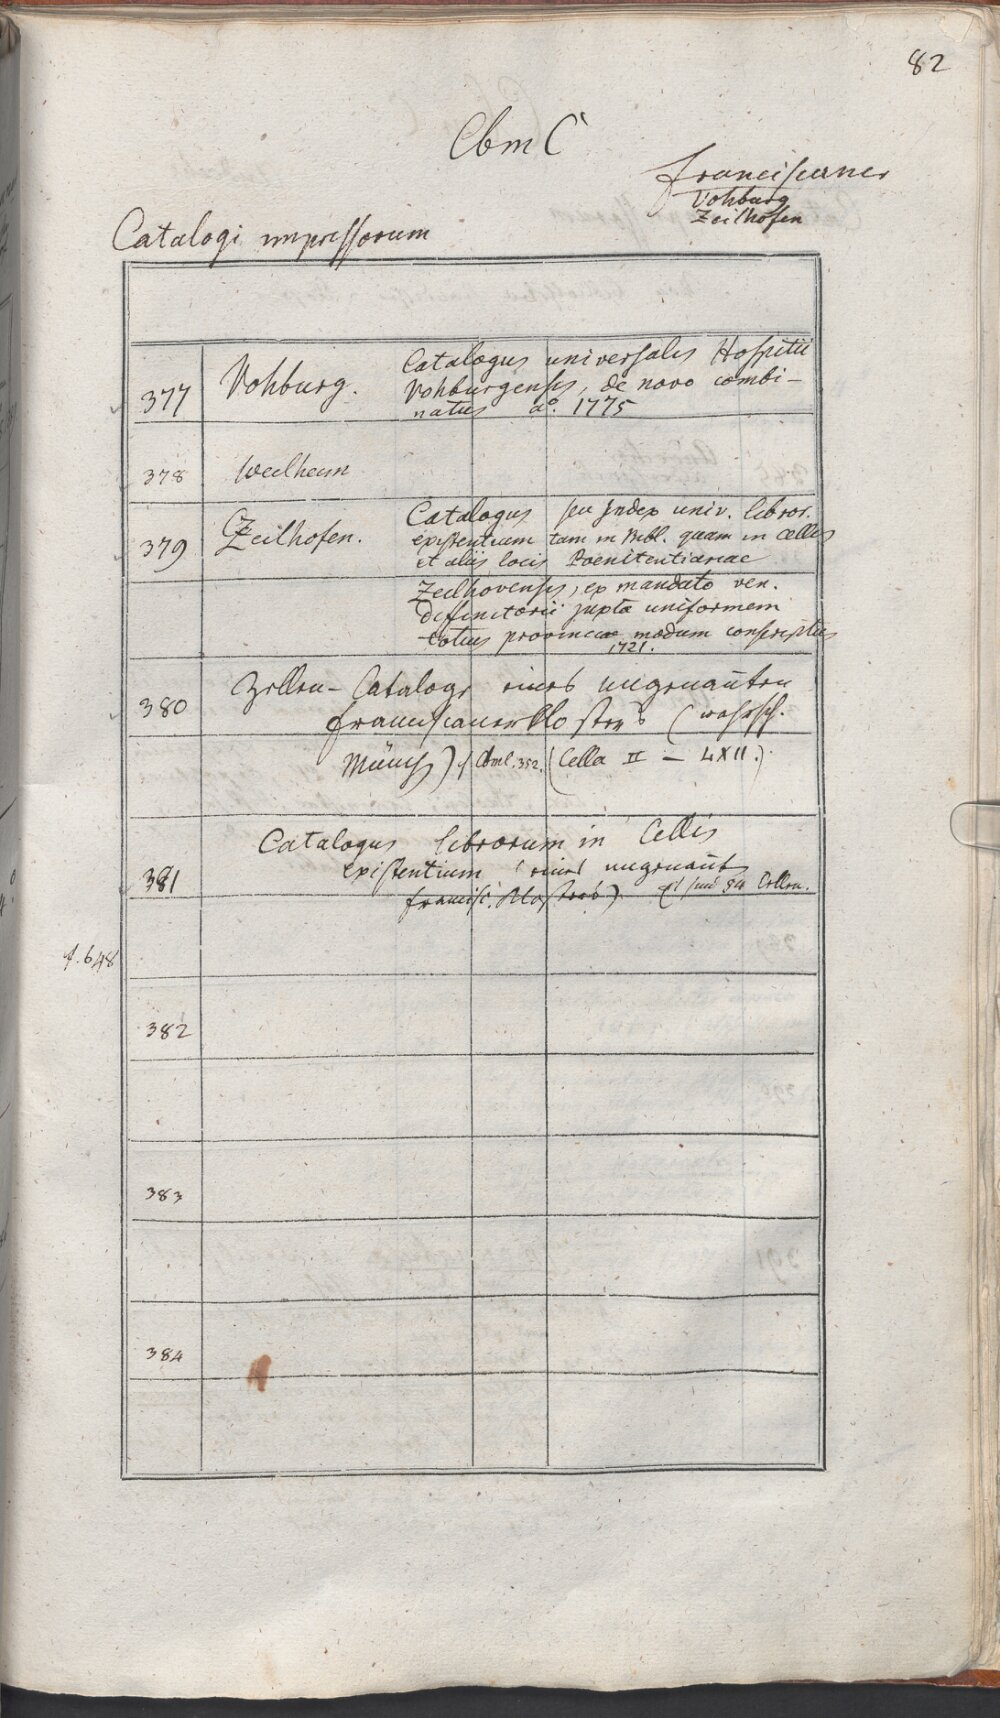 82
Cbm C
Franciscaner
Vohburg
Zeilhofen
Catalogi impressorum
377 Vohburg. Catalogus universalis Hospitii
Vohburgensis, de novo combi-
natus aº. 1775
378 Weilheim
379 Zeilhofen. Catalogus seu Index univ. libror.
existentium tam in Bibl. quam in cellis
et aliis locis Poenitentiariae
Zeilhovensis, ex mandato ven.
definitorii juxta uniformem
totius provinciae modum conscriptus
1721.
380 Zellen-Cataloge eines ungenañten
Franciscanerklosters (wahrsch.
Münch) cf Cbml. 352. (Cella II – LXII.)
Catalogus librorum in Cellis
381 existentium (eines ungenañt
Francisc. Klosters). sind 84 Zellen.
f. 648
382
383
384